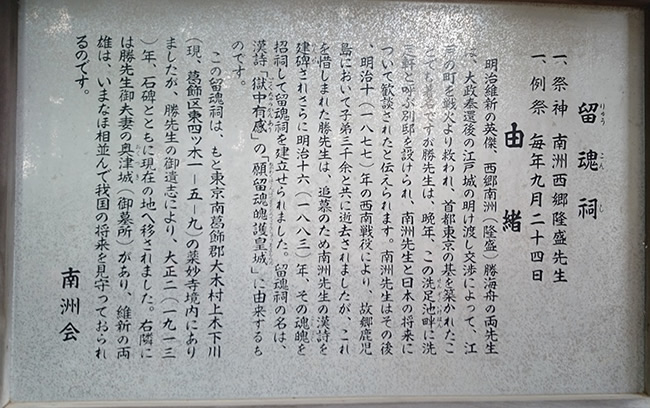 留魂祠
りゅう こん し
一、祭神 南洲西郷隆盛先生
一、例祭 毎年九月二十四日
由緒
明治維新の英傑、西郷南洲(隆盛)勝海舟の両先生
は、大政奉還後の江戸城の明け渡し交渉によって、江
戸の町を戦火より救われ、首都東京の基を築かれたこ
とでも著名ですが勝先生は、晩年、この洗足池畔に洗
足軒と呼ぶ別邸を設けられ、南洲先生と日本の将来に
ついて歓談されたと伝えられます。南洲先生はその後
、明治十(一八七七)年の西南戦役により、故郷鹿児
島において子弟三千余と共に逝去されましたが、これ
を惜しまれた勝先生は、追慕のため南洲先生の漢詩を
建碑されさらに明治十六(一八八三)年、その魂魄を
招祠して留魂祠を建立せられました。留魂祠の名は、
漢詩「獄中有感」の「願留魂魄護皇城」に由来するも
のです。
この留魂祠は、もと東京南葛飾郡大木村上木下川
(現、葛飾区東四ッ木一―五―九)の薬妙寺境内にあり
ましたが、勝先生の御遺志により、大正二(一九一三
)年、石碑とともに現在の地へ移されました。右隣に
は勝先生御夫妻の奥津城(御墓所)があり、維新の両
雄は、いまなほ相並んで我国の将来を見守っておられ
るのです。
南洲会